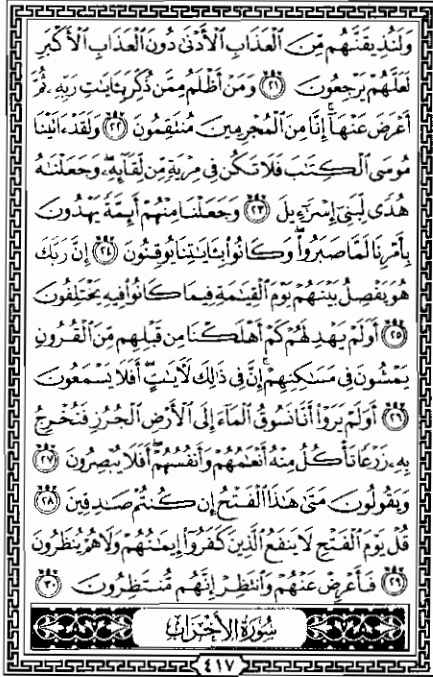 وَلَنُذِيقَنَّهُم مِّنَ ٱلْعَذَابِ ٱلْأَدْنَىٰ دُونَ ٱلْعَذَابِ ٱلْأَكْبَرِ
لَعَلَّهُمْ يَرْجِعُونَ ٢١ وَمَنْ أَظْلَمُ مِمَّن ذُكِّرَ بِـَٔايَـٰتِ رَبِّهِۦ ثُمَّ
أَعْرَضَ عَنْهَآ ۚ إِنَّا مِنَ ٱلْمُجْرِمِينَ مُنتَقِمُونَ ٢٢ وَلَقَدْ ءَاتَيْنَا
مُوسَى ٱلْكِتَـٰبَ فَلَا تَكُن فِى مِرْيَةٍ مِّن لِّقَآئِهِۦ ۖ وَجَعَلْنَـٰهُ
هُدًى لِّبَنِىٓ إِسْرَٰٓءِيلَ ٢٣ وَجَعَلْنَا مِنْهُمْ أَئِمَّةً يَهْدُونَ
بِأَمْرِنَا لَمَّا صَبَرُوا۟ ۖ وَكَانُوا۟ بِـَٔايَـٰتِنَا يُوقِنُونَ ٢٤ إِنَّ رَبَّكَ
هُوَ يَفْصِلُ بَيْنَهُمْ يَوْمَ ٱلْقِيَـٰمَةِ فِيمَا كَانُوا۟ فِيهِ يَخْتَلِفُونَ
٢٥ أَوَلَمْ يَهْدِ لَهُمْ كَمْ أَهْلَكْنَا مِن قَبْلِهِم مِّنَ ٱلْقُرُونِ
يَمْشُونَ فِى مَسَـٰكِنِهِمْ ۚ إِنَّ فِى ذَٰلِكَ لَـَٔايَـٰتٍ ۖ أَفَلَا يَسْمَعُونَ
٢٦ أَوَلَمْ يَرَوْا۟ أَنَّا نَسُوقُ ٱلْمَآءَ إِلَى ٱلْأَرْضِ ٱلْجُرُزِ فَنُخْرِجُ
بِهِۦ زَرْعًا تَأْكُلُ مِنْهُ أَنْعَـٰمُهُمْ وَأَنفُسُهُمْ ۖ أَفَلَا يُبْصِرُونَ ٢٧
وَيَقُولُونَ مَتَىٰ هَـٰذَا ٱلْفَتْحُ إِن كُنتُمْ صَـٰدِقِينَ ٢٨
قُلْ يَوْمَ ٱلْفَتْحِ لَا يَنفَعُ ٱلَّذِينَ كَفَرُوٓا۟ إِيمَـٰنُهُمْ وَلَا هُمْ يُنظَرُونَ
٢٩ فَأَعْرِضْ عَنْهُمْ وَٱنتَظِرْ إِنَّهُم مُّنتَظِرُونَ ٣٠
سُورَةُ الأَحْزَابِ
٤١٧